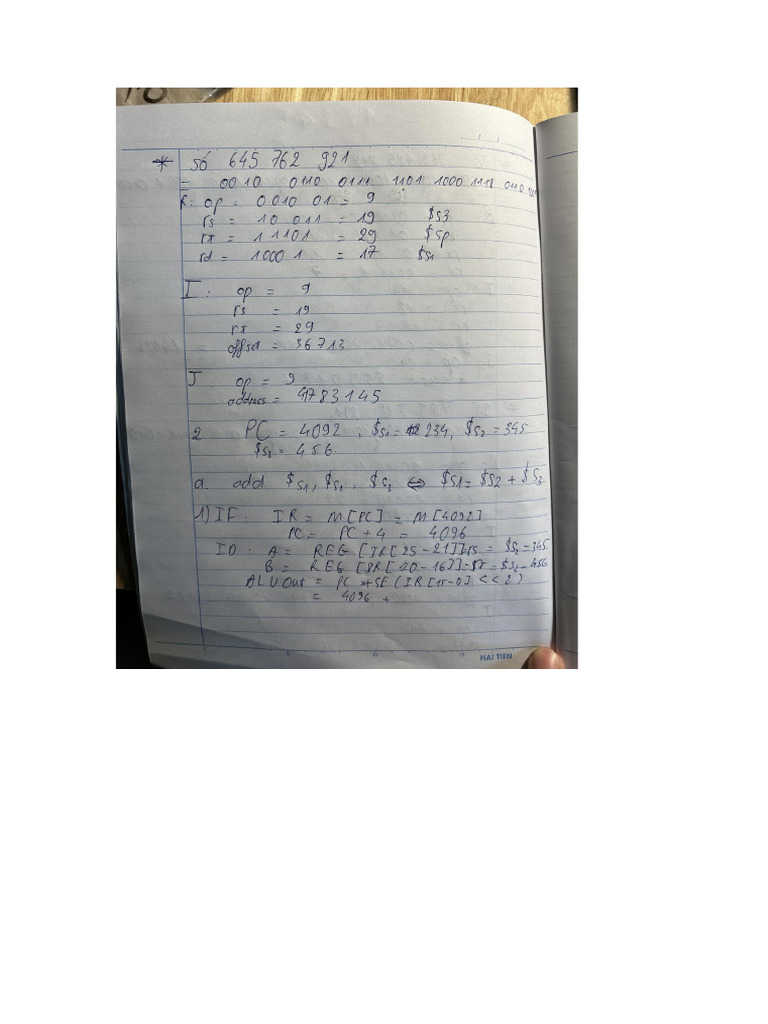 * Số 645 762 921
= 0010 0110 0111 1101 1000 1111 0110
R: op = 0010 01 = 9
rs = 10 011 = 19 $s3
rt = 1 1101 = 29 $sp
rd = 1000 1 = 17 $s1
I: op = 9
rs = 19
rt = 29
offset = 36713
J: op = 9
address = 41783145
2 PC = 4092, $s1 = 234, $s2 = 345
$s3 = 456.
a. add $s1, $s2, $s3 ⇔ $s1 = $s2 + $s3
1) IF: IR = M[PC] = M[4092]
PC = PC + 4 = 4096
ID: A = REG[IR[25-21]] = rs = $s2 = 345
B = REG[IR[20-16]] = rt = $s3 = 456
ALUout = PC + SE(IR[15-0] << 2)
= 4096 +
HAI TIEN